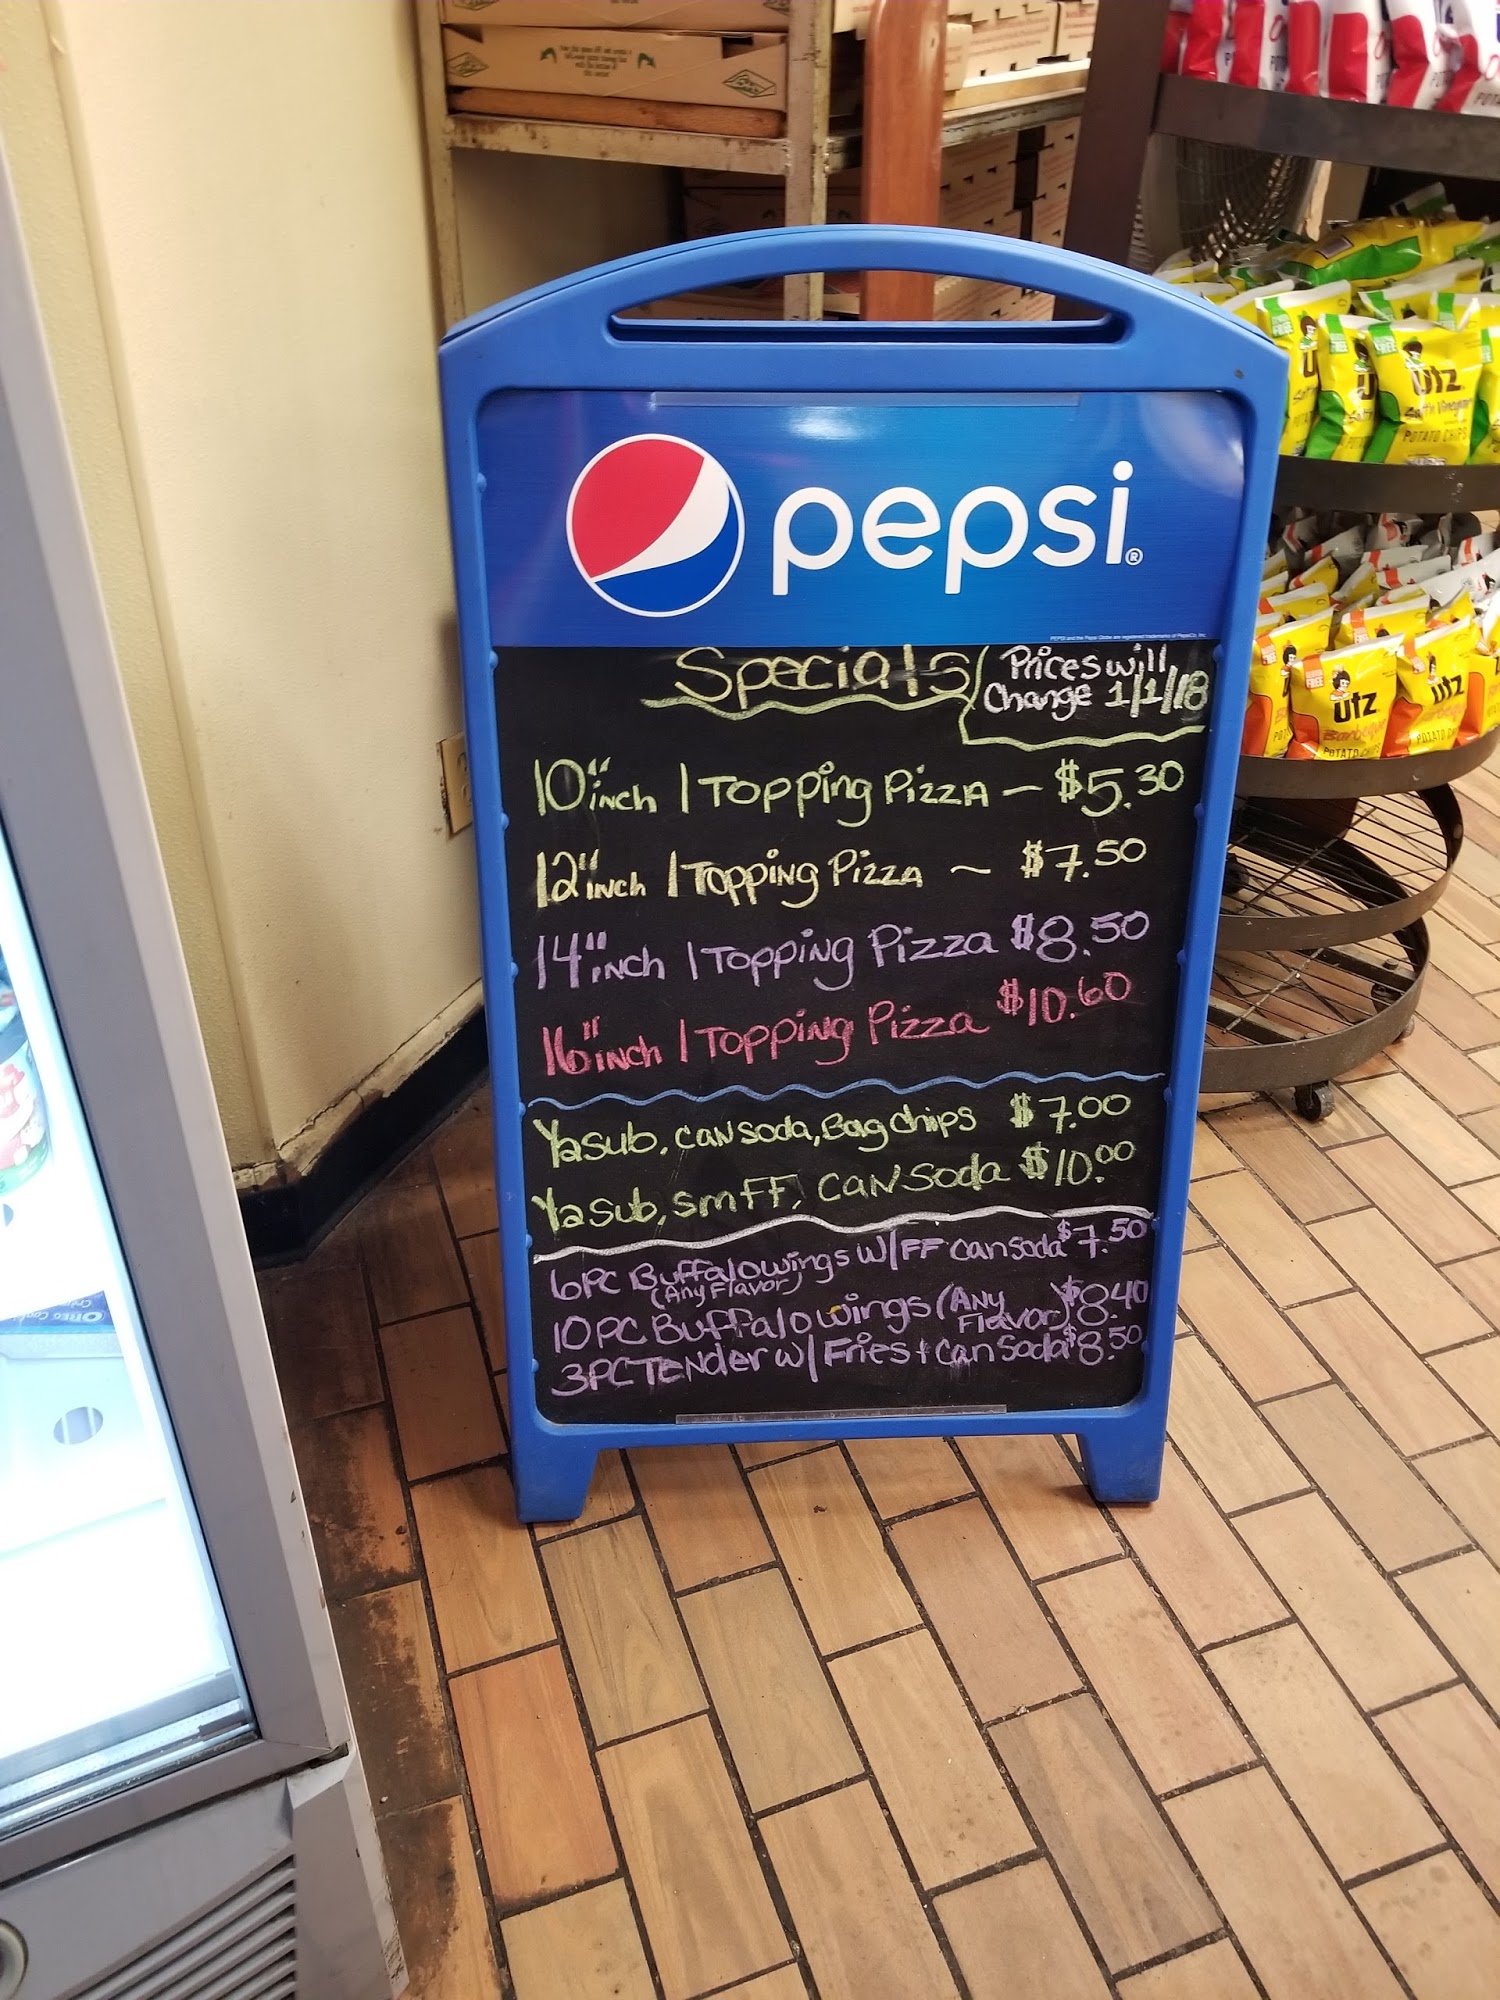 pepsi®
Specials
Prices will
Change 1/1/18
10" inch 1 Topping Pizza — $5.30
12" inch 1 Topping Pizza ~ $7.50
14" inch 1 Topping Pizza $8.50
16" inch 1 Topping Pizza $10.60
½ sub, can soda, Bag chips $7.00
½ sub, sm FF, can soda $10.00
6PC Buffalo wings w/FF can soda $7.50
(Any Flavor)
10PC Buffalo wings (Any Flavor) $8.40
3PC Tender w/ Fries + Can Soda $8.50
utz
Salt'n Vinegar
POTATO CHIPS
utz
Barbeque
POTATO CHIPS
utz
POTATO CHIPS
OREO